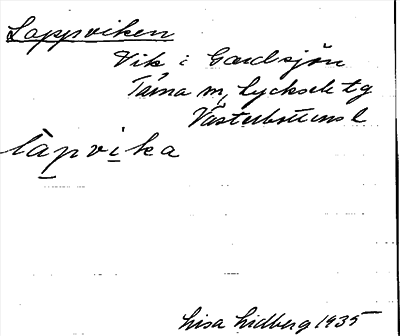 Lappviken
Vik i Gardsjön
Tärna m, Lycksele tg
Västerbottens l
lapvika
Lisa Lidberg 1935